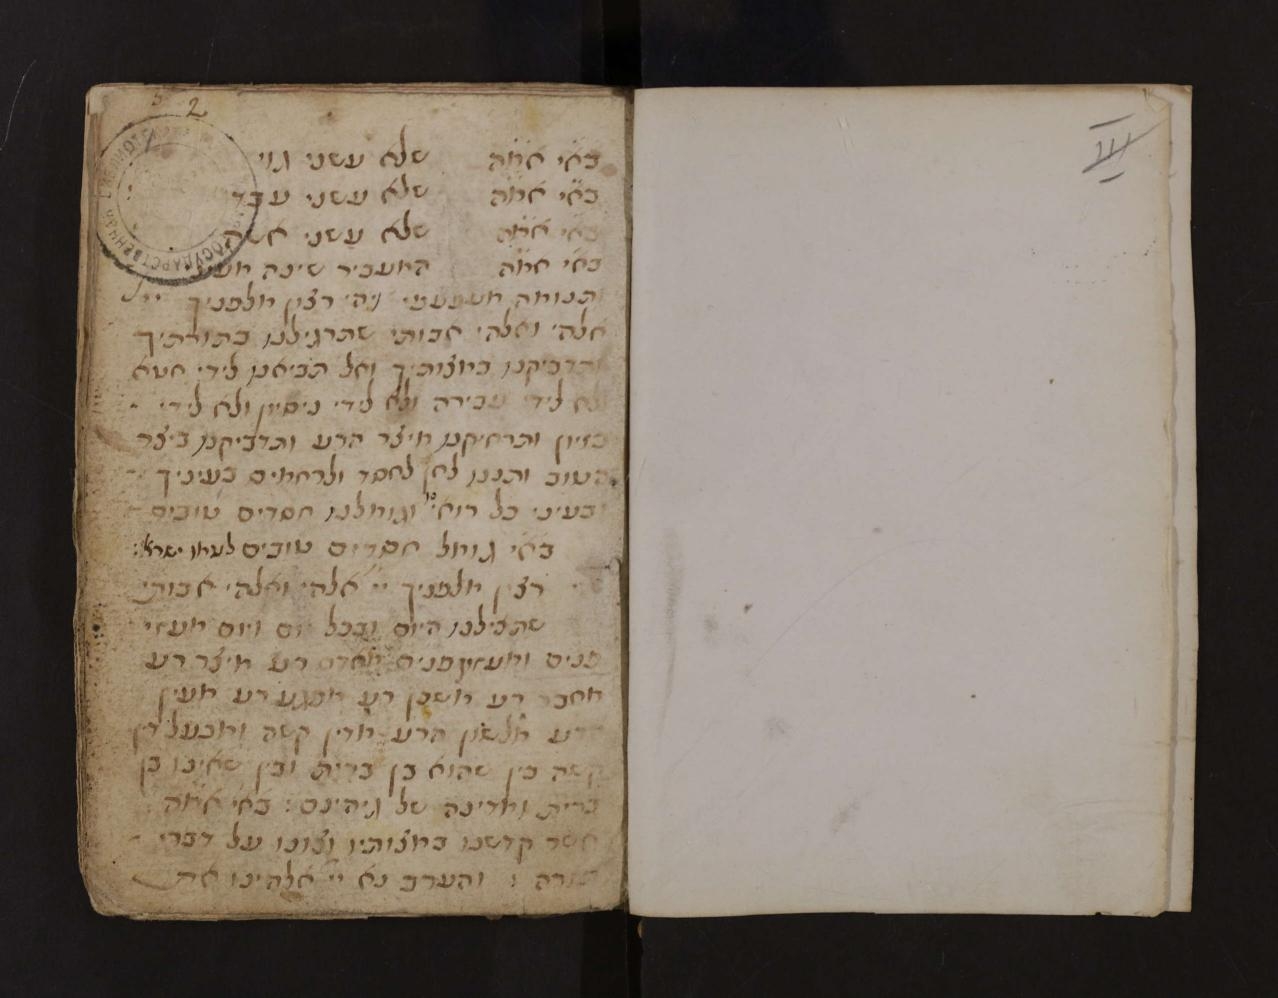 2
III
באי אמה שלא עשני גוי
באי אמה שלא עשני עבד
באי אמה שלא עשני אשה
באי אמה המעביר שינה מעיני
ותנומה מעפעפי ויהי רצון מלפניך יי
אלהי ואלהי אבותי שתרגילנו בתורתיך
ותדביקנו במצותיך ואל תביאנו לידי חטא
ולא לידי עבירה ולא לידי ניסיון ולא לידי
בזיון ותרחיקנו מיצר הרע ותדביקנו ביצר
הטוב ותננו לחן לחסד ולרחמים בעיניך
ובעיני כל רואי וגומלנו חסדים טובים
באי גומל חסדים טובים לעמו ישראל:
רצון מלפניך יי אלהי ואלהי אבותי
שתצילנו היום ובכל יום ויום מעזי
פנים ומעזות פנים מאדם רע מיצר רע
מחבר רע משכן רע מפגע רע מעין
הרע מלשון הרע מדין קשה ומבעל דין
קשה בין שהוא בן ברית ובין שאינו בן
ברית ומדינה של גיהינם: באי אמה
אשר קדשנו במצותיו וצונו על דברי
תורה : והערב נא יי אלהינו את